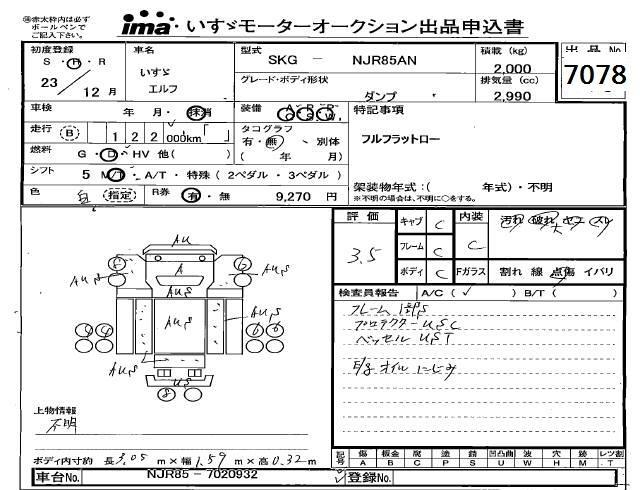 ㊟赤太枠内は必ずボールペンでご記入下さい。
ima いすゞモーターオークション出品申込書
初度登録 S・H・R
23年12月
車名
いすゞ
エルフ
型式
SKG － NJR85AN
積載 (kg)
2,000
出品No
7078
グレード・ボディ形状
ダンプ
排気量 (cc)
2,990
車検 年 月・抹消
装備 A C P S P W
特記事項
フルフラットロー
走行 B 122 000km
タコグラフ
有・無・別体
( 年 月)
燃料 G・D・HV 他( )
シフト 5 M/T・A/T・特殊(2ペダル・3ペダル)
色 白 (指定) R券 有・無 9,270 円
架装物年式：( 年式)・不明
※不明の場合は、不明に○をする。
評価 3.5
キャブ C
フレーム C
ボディ C
内装 C
汚れ 破れ コゲ スレ
Fガラス 割れ 線 点傷 イバリ
検査員報告 A/C (✓) B/T ( )
フレーム 腐S
プロテクター USC
ベッセル UST
E/g オイル にじみ
AU
A
AUS
AUS
AUS
AUS
AUS
AUS
AUS
US
上物情報
不明
ボディ内寸約 長 3.05 m×幅 1.59 m×高 0.32 m
記号 傷 A 板金 B 腐 C 塗 P 錆 S 凹凸曲 U 波 W 穴 H 跡 M レンズ割 T
車台No. NJR85 - 7020932
登録No.